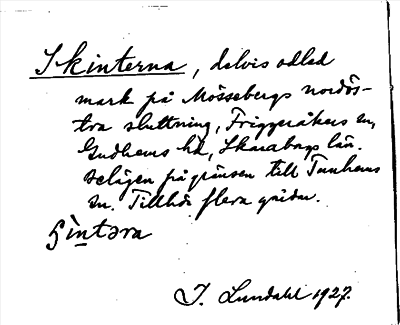 Skinterna, delvis odlad
mark på Mössebergs nordös-
tra sluttning, Friggeråkers sn,
Gudhems hd, Skarabergs län.
Belägen på gränsen till Tunhems
sn. Tillhör flera gårdar.
ʃìntəra
I. Lundahl 1927.